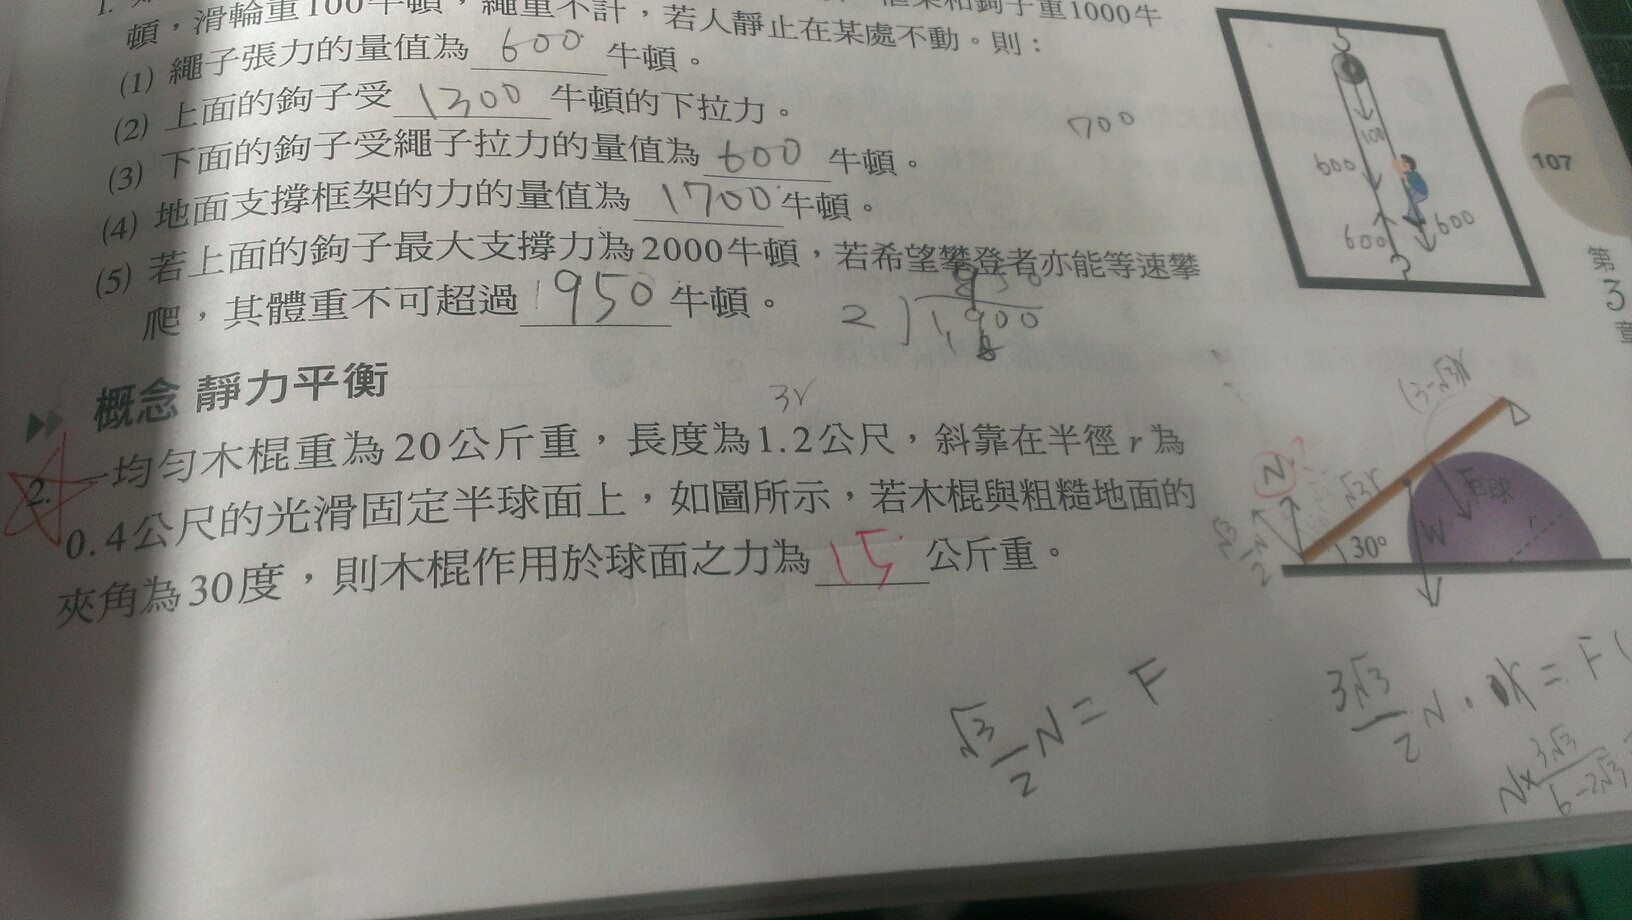 頓,滑輪重100牛頓,繩重不計,若人靜止在某處不動。則:
(1) 繩子張力的量值為 600 牛頓。
(2) 上面的鉤子受 1300 牛頓的下拉力。
(3) 下面的鉤子受繩子拉力的量值為 600 牛頓。
(4) 地面支撐框架的力的量值為 1700 牛頓。
(5) 若上面的鉤子最大支撐力為2000牛頓,若希望攀登者亦能等速攀
爬,其體重不可超過 950 牛頓。
700
2 1900
100
600
600
600
107
第
3
章
概念 靜力平衡
3r
2. 一均勻木棍重為20公斤重,長度為1.2公尺,斜靠在半徑 r 為
0.4公尺的光滑固定半球面上,如圖所示,若木棍與粗糙地面的
夾角為30度,則木棍作用於球面之力為 15 公斤重。
(3-√3)r
N ?
√3r
F
半球
r
W
30°
√3/2 N
√3/2 N = F
3√3/2 N · r = F (
N × 3√3/6-2√3